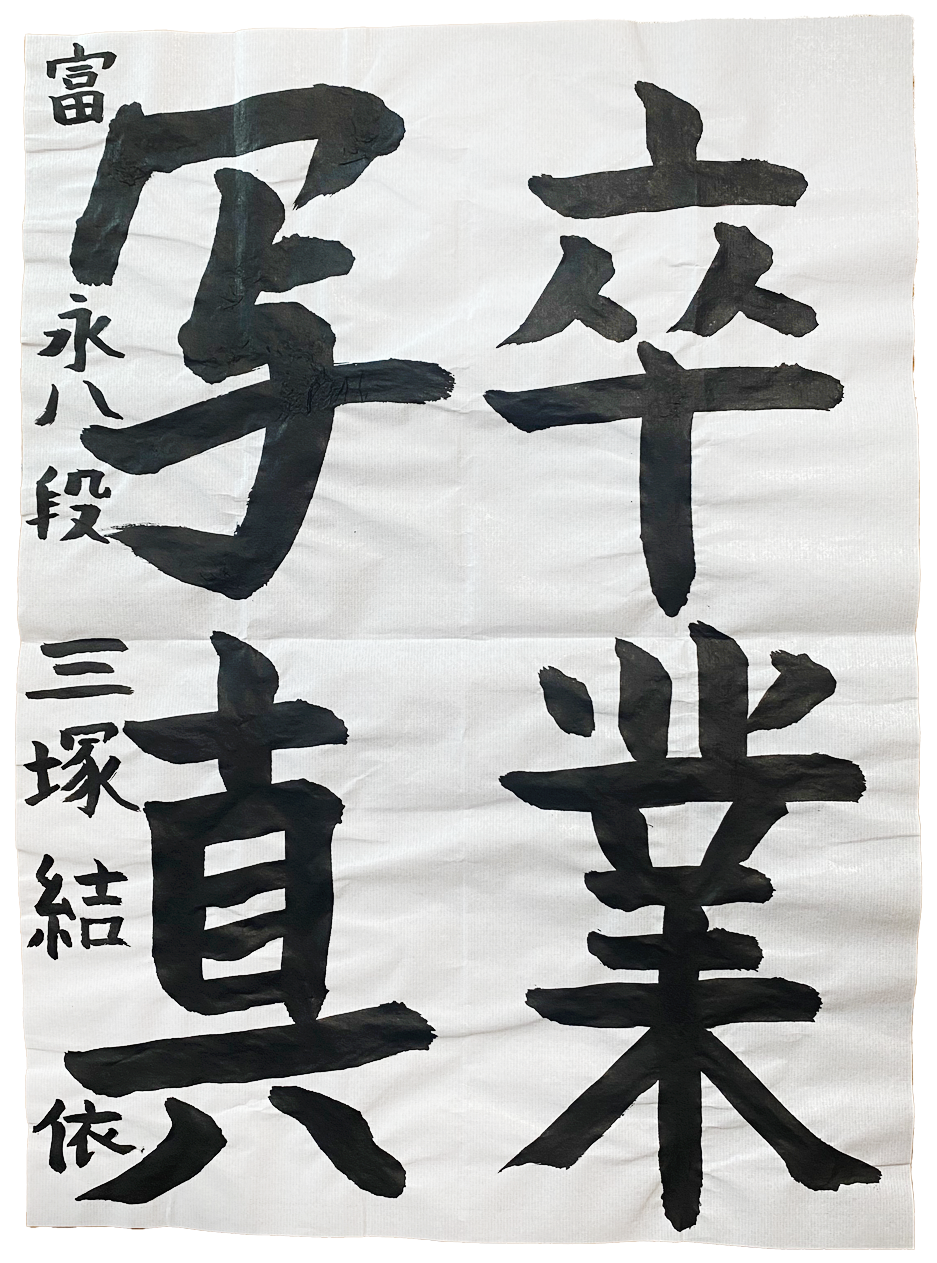 卒業
写真
富永八段 三塚結依